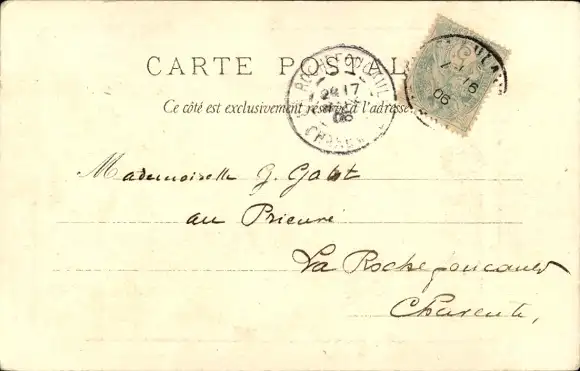 CARTE POSTALE
Ce côté est exclusivement réservé à l'adresse
LA ROCHEFOUCAUL
17
06
CHAREN
16
06
Mademoiselle G.
au Prieuré
La Rochefoucauld
Charente,